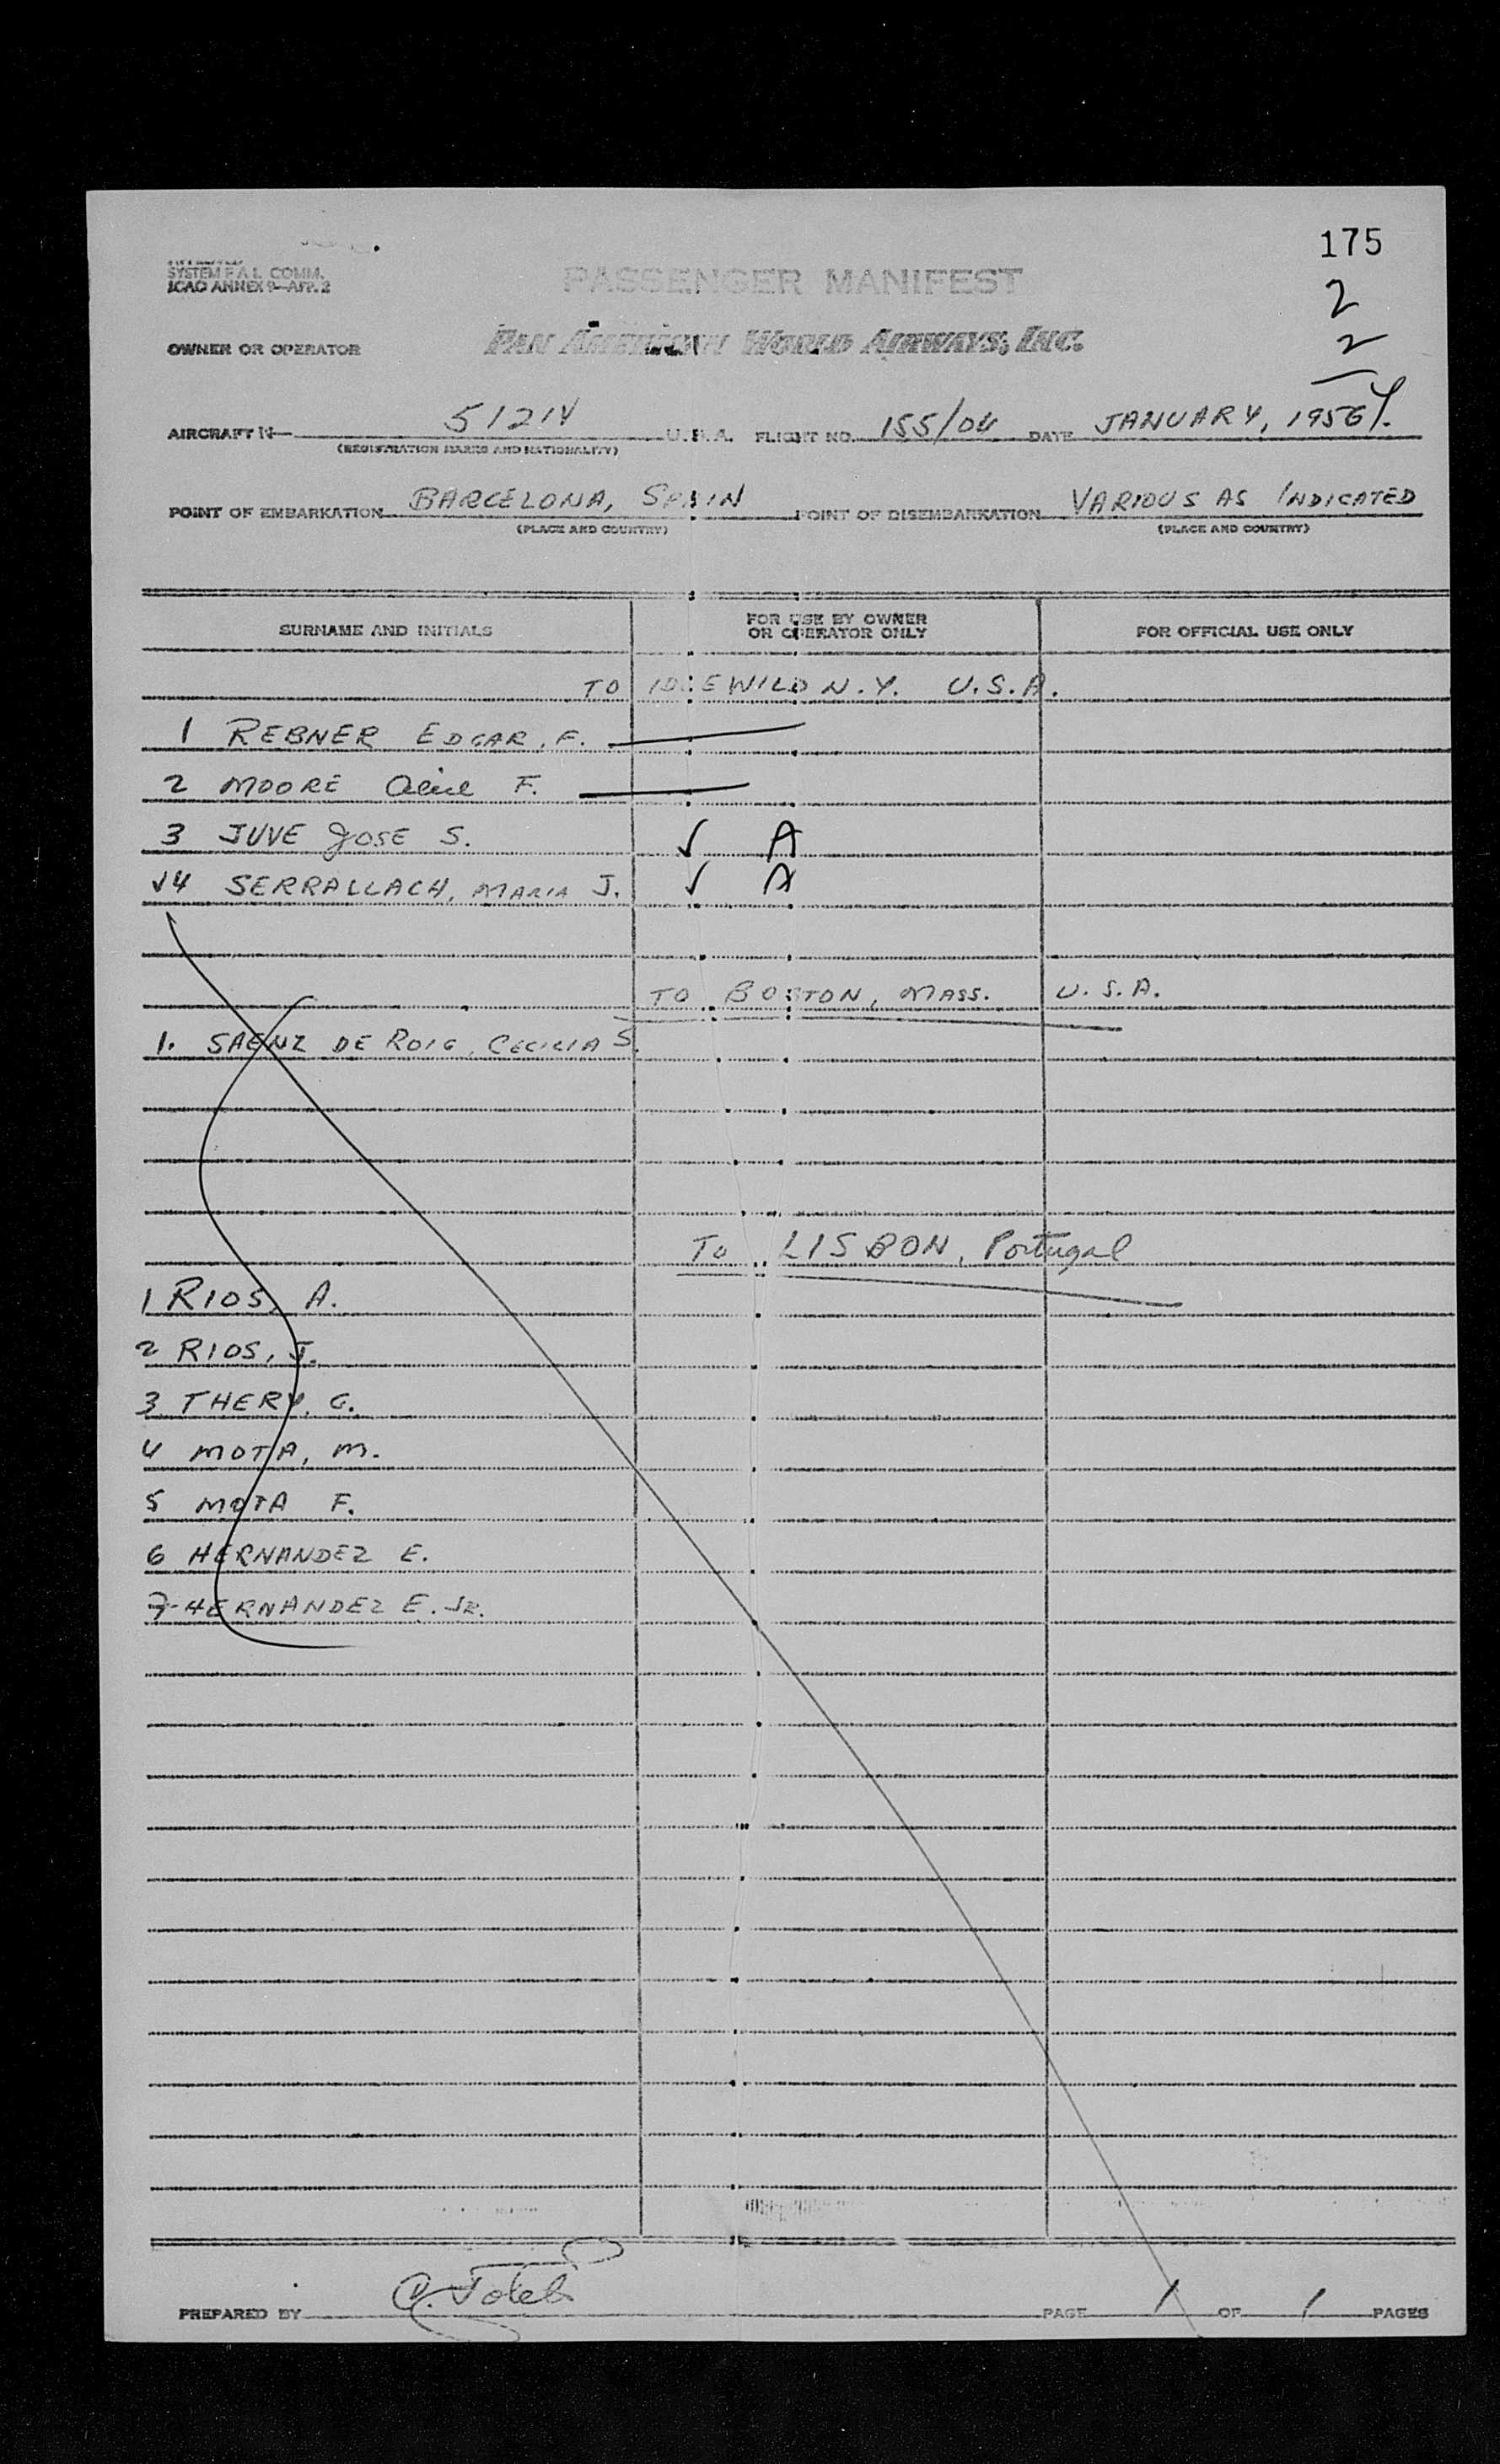 175
SYSTEM F.A.L. COMM.
ICAO ANNEX 9—APP. 2
PASSENGER MANIFEST
2
2
OWNER OR OPERATOR PAN AMERICAN WORLD AIRWAYS, INC.
AIRCRAFT N— 5121V U.S.A. FLIGHT NO. 155/04 DATE JANUARY, 1956
(REGISTRATION MARKS AND NATIONALITY)
POINT OF EMBARKATION BARCELONA, SPAIN POINT OF DISEMBARKATION VARIOUS AS INDICATED
(PLACE AND COUNTRY) (PLACE AND COUNTRY)
SURNAME AND INITIALS FOR USE BY OWNER OR OPERATOR ONLY FOR OFFICIAL USE ONLY
TO IDLEWILD N.Y. U.S.A.
1 REBNER EDGAR, F.
2 MOORE F.
3 JUVE JOSE S. √ A
√4 SERRALLACH, MARIA J. √ A
TO BOSTON, MASS. U.S.A.
1. SAENZ DE ROIG, CECILIA S.
To LISBON, Portugal
1 RIOS, A.
2 RIOS, J.
3 THERY, G.
4 MOTA, M.
5 MOTA F.
6 HERNANDEZ E.
7 HERNANDEZ E. JR.
PREPARED BY PAGE 1 OF 1 PAGES